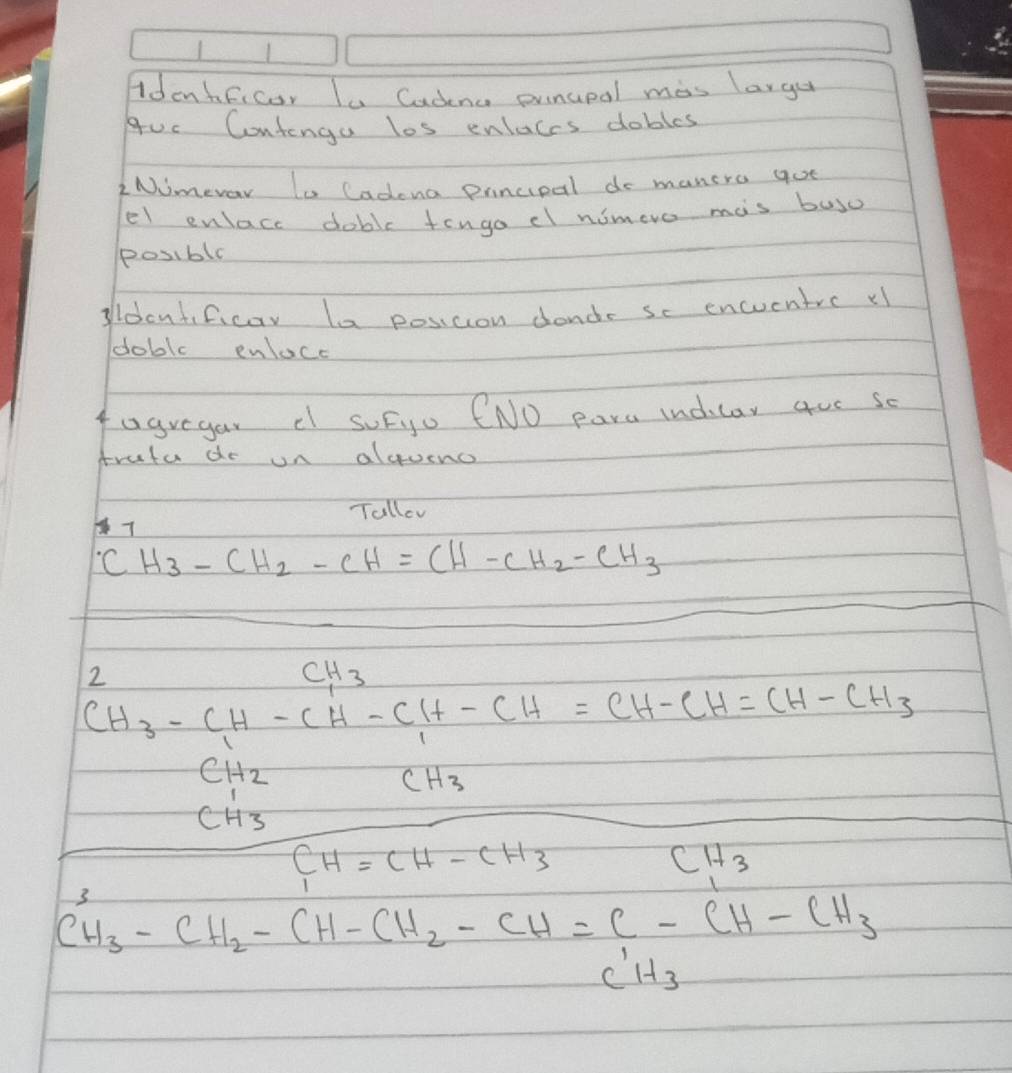 1Identificar la Cadena principal más larga
que Contenga los enlaces dobles
2 Númerar la Cadena Principal de manera que
el enlace doble tenga el número más bajo
posible
3 Identificar la posicion donde se encuentre el
doble enlace
4 agregar el sufijo ENO para indicar que se
trata de un alqueno
Taller
1
CH3 - CH2 - CH = CH - CH2 - CH3
2 CH3
CH3 - CH - CH - CH - CH = CH - CH = CH - CH3
CH2 CH3
CH3
CH = CH - CH3 CH3
3
CH3 - CH2 - CH - CH2 - CH = C - CH - CH3
CH3